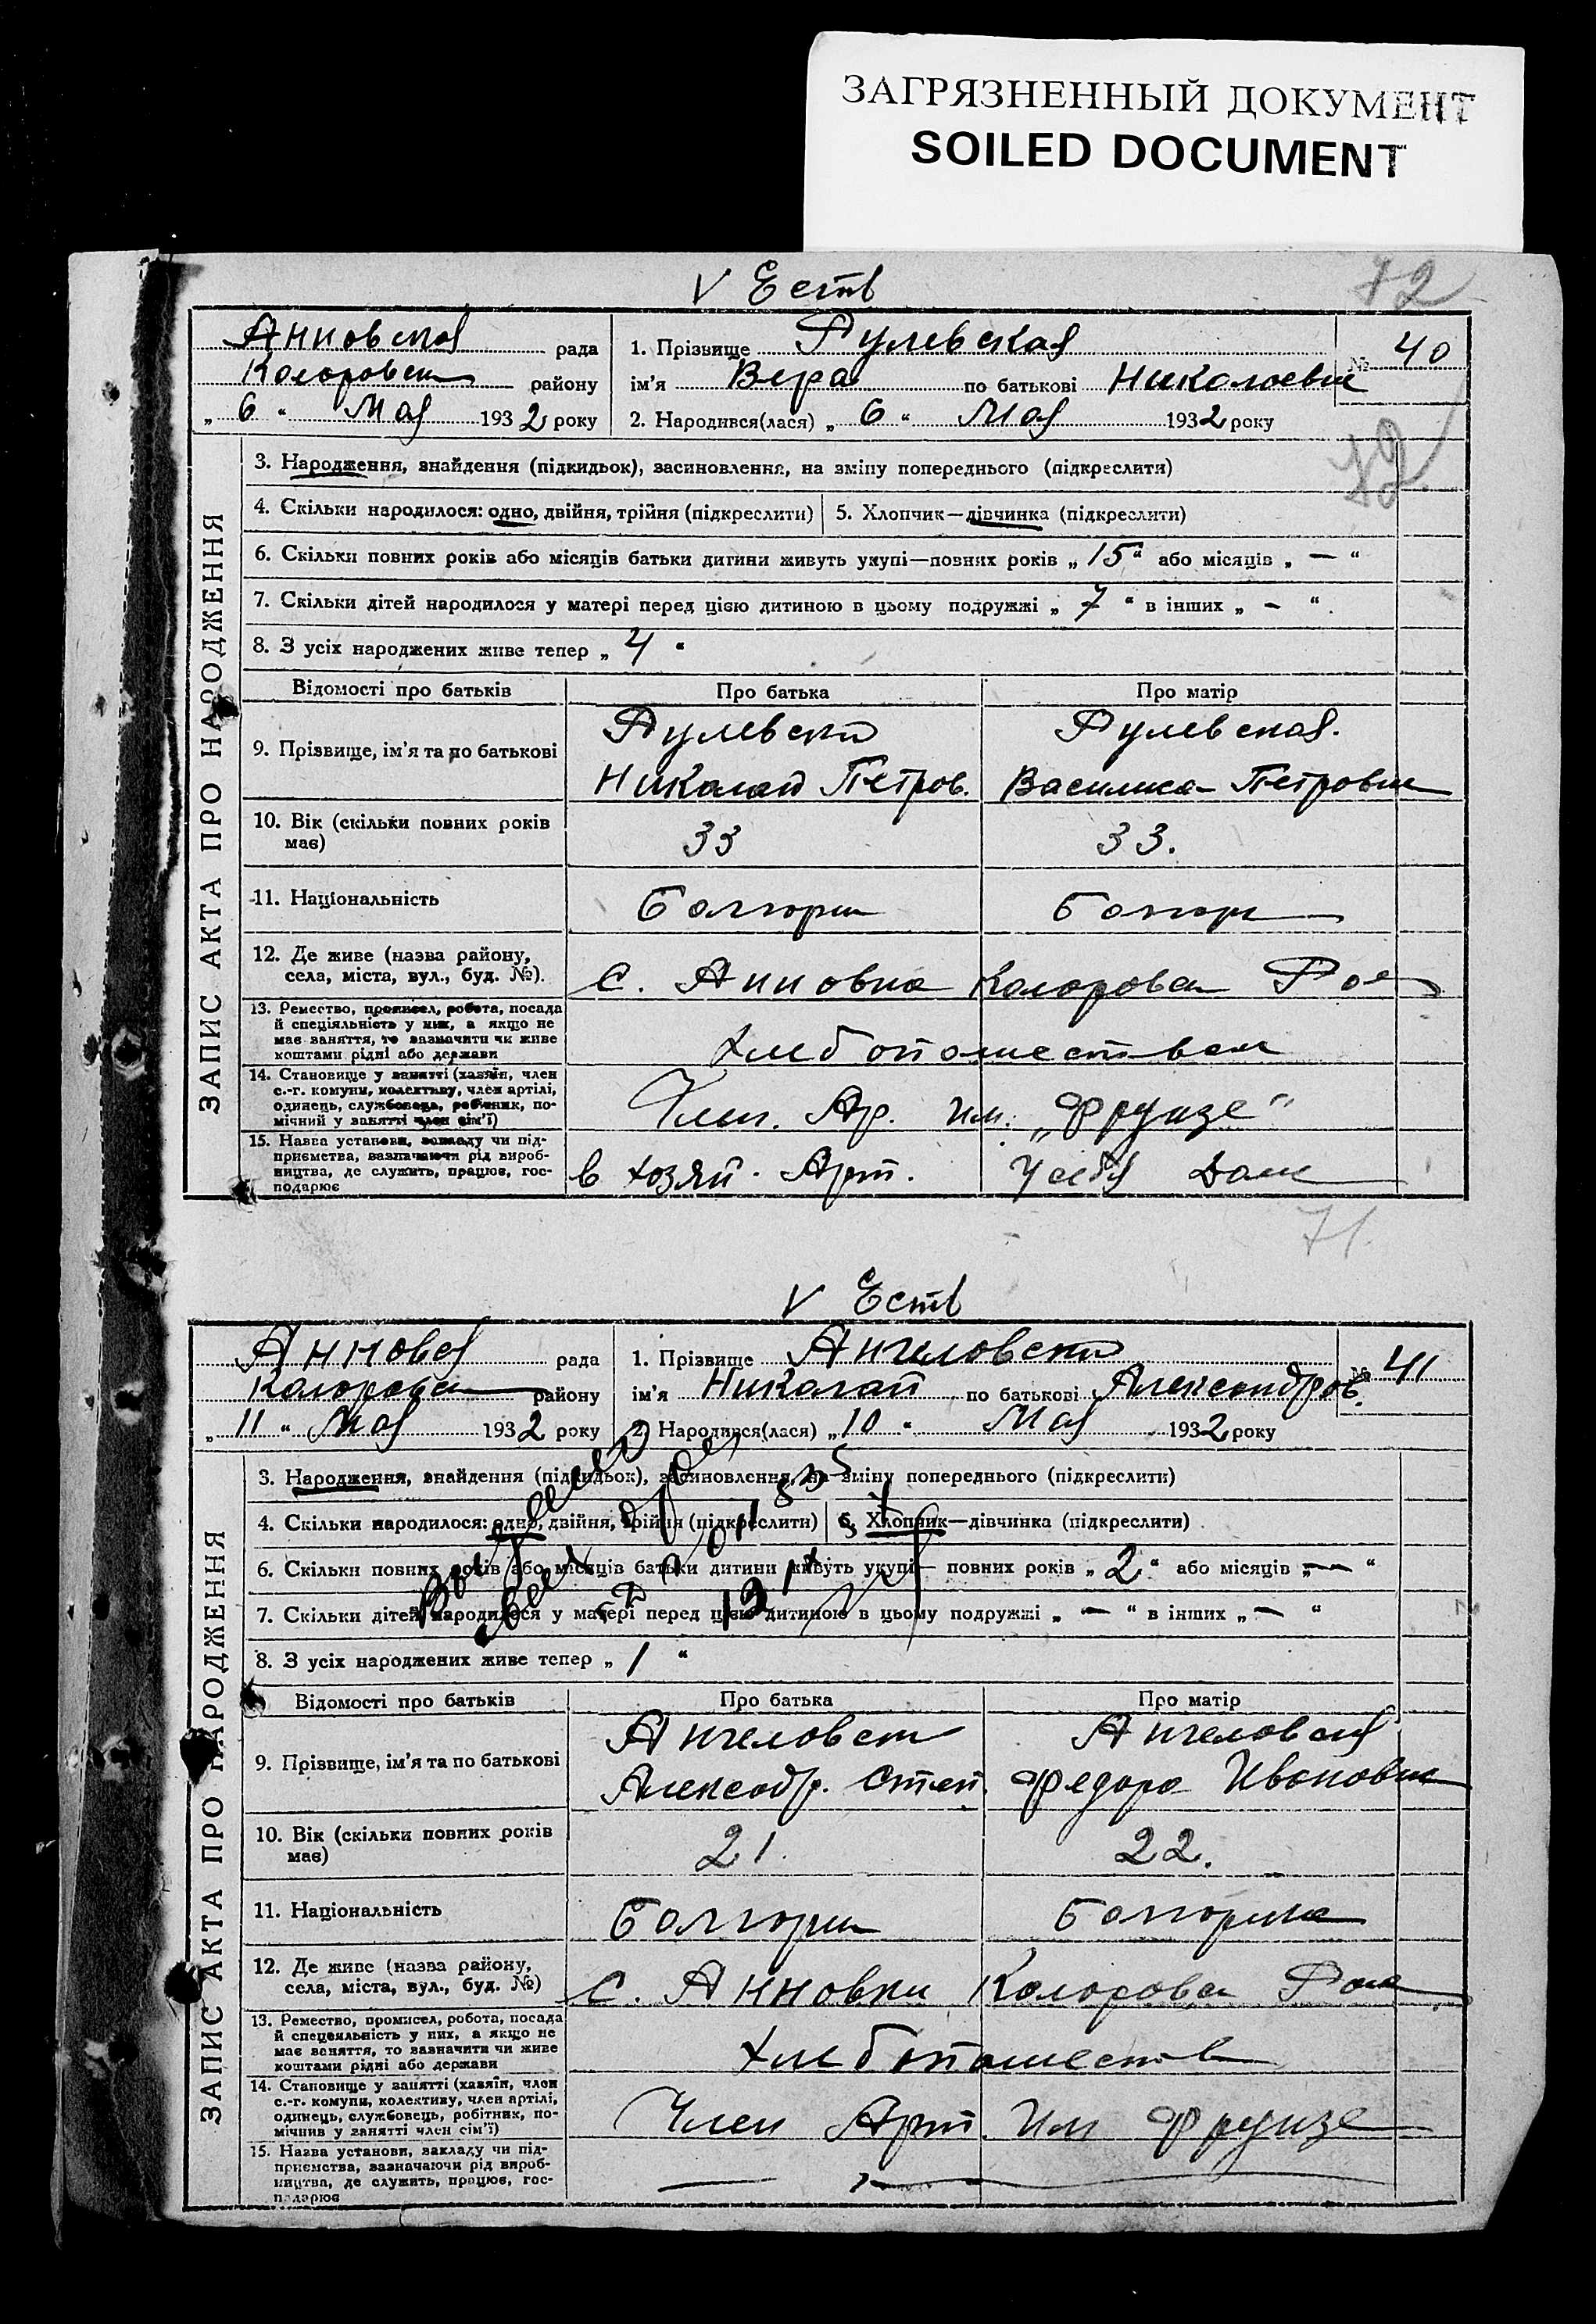 ЗАГРЯЗНЕННЫЙ ДОКУМЕНТ
SOILED DOCUMENT
V Еств
72
Анновская рада
Коларовск району
„ 6 “ Мая 1932 року
1. Прізвище Рулевская
ім’я Вера по батькові Николаевна
2. Народився(лася) „ 6 “ Мая 1932 року
№ 40
72
ЗАПИС АКТА ПРО НАРОДЖЕННЯ
3. Народження, знайдення (підкидьок), засиновлення, на зміну попереднього (підкреслити)
4. Скільки народилося: одно, двійня, трійня (підкреслити)
5. Хлопчик—дівчинка (підкреслити)
6. Скільки повних років або місяців батьки дитини живуть укупі—повних років „ 15 “ або місяців „ — “
7. Скільки дітей народилося у матері перед цією дитиною в цьому подружжі „ 7 “ в інших „ — “.
8. З усіх народжених живе тепер „ 4 “
Відомості про батьків Про батька Про матір
9. Прізвище, ім’я та по батькові
Рулевский
Николай Петров.
Рулевская.
Василиса Петровна
10. Вік (скільки повних років має)
33
33.
11. Національність
Болгарин
Болгар
12. Де живе (назва району,
села, міста, вул., буд. №).
С. Анновка Коларовск Рое
13. Ремество, промисел, робота, посада
й спеціяльність у них, а якщо не
має заняття, то зазначити чи живе
коштами рідні або держави
Хлебопашеством
14. Становище у занятті (хазяїн, член
с.-г. комуни, колективу, член артілі,
одинець, службовець, робітник, по-
мічний у занятті член сім’ї)
Член. Ар. Им. „Фрунзе“
15. Назва установи, закладу чи під-
приємства, зазначаючи рід вироб-
ництва, де служить, працює, гос-
подарює
в хозяй. Арт.
У себя Дома
71.
V Еств
Анновск рада
Коларовск району
„ 11 “ Мая 1932 року
1. Прізвище Ангеловский
ім’я Николай по батькові Александров.
2. Народився(лася) „ 10 “ Мая 1932 року
№ 41
ЗАПИС АКТА ПРО НАРОДЖЕННЯ
3. Народження, знайдення (підкидьок), засиновлення, на зміну попереднього (підкреслити)
4. Скільки народилося: одно, двійня, трійня (підкреслити)
5. Хлопчик—дівчинка (підкреслити)
6. Скільки повних років або місяців батьки дитини живуть укупі— повних років „ 2 “ або місяців „ — “
7. Скільки дітей народилося у матері перед цією дитиною в цьому подружжі „ — “ в інших „ — “
8. З усіх народжених живе тепер „ 1 “
Відомості про батьків Про батька Про матір
9. Прізвище, ім’я та по батькові
Ангеловск
Александр. Степ.
Ангеловская
Федора Ивановна
10. Вік (скільки повних років
має)
21.
22.
11. Національність
Болгарин
Болгарка
12. Де живе (назва району,
села, міста, вул., буд. №)
С. Анновки Коларовск
13. Ремество, промисел, робота, посада
й спеціяльність у них, а якщо не
має заняття, то зазначити чи живе
коштами рідні або держави
Хлебопашеств
14. Становище у занятті (хазяїн, член
с.-г. комуни, колективу, член артілі,
одинець, службовець, робітник, по-
мічний у занятті член сім’ї)
Член Арт. Им Фрунзе
15. Назва установи, закладу чи під-
приємства, зазначаючи рід вироб-
ництва, де служить, працює, гос-
подарює